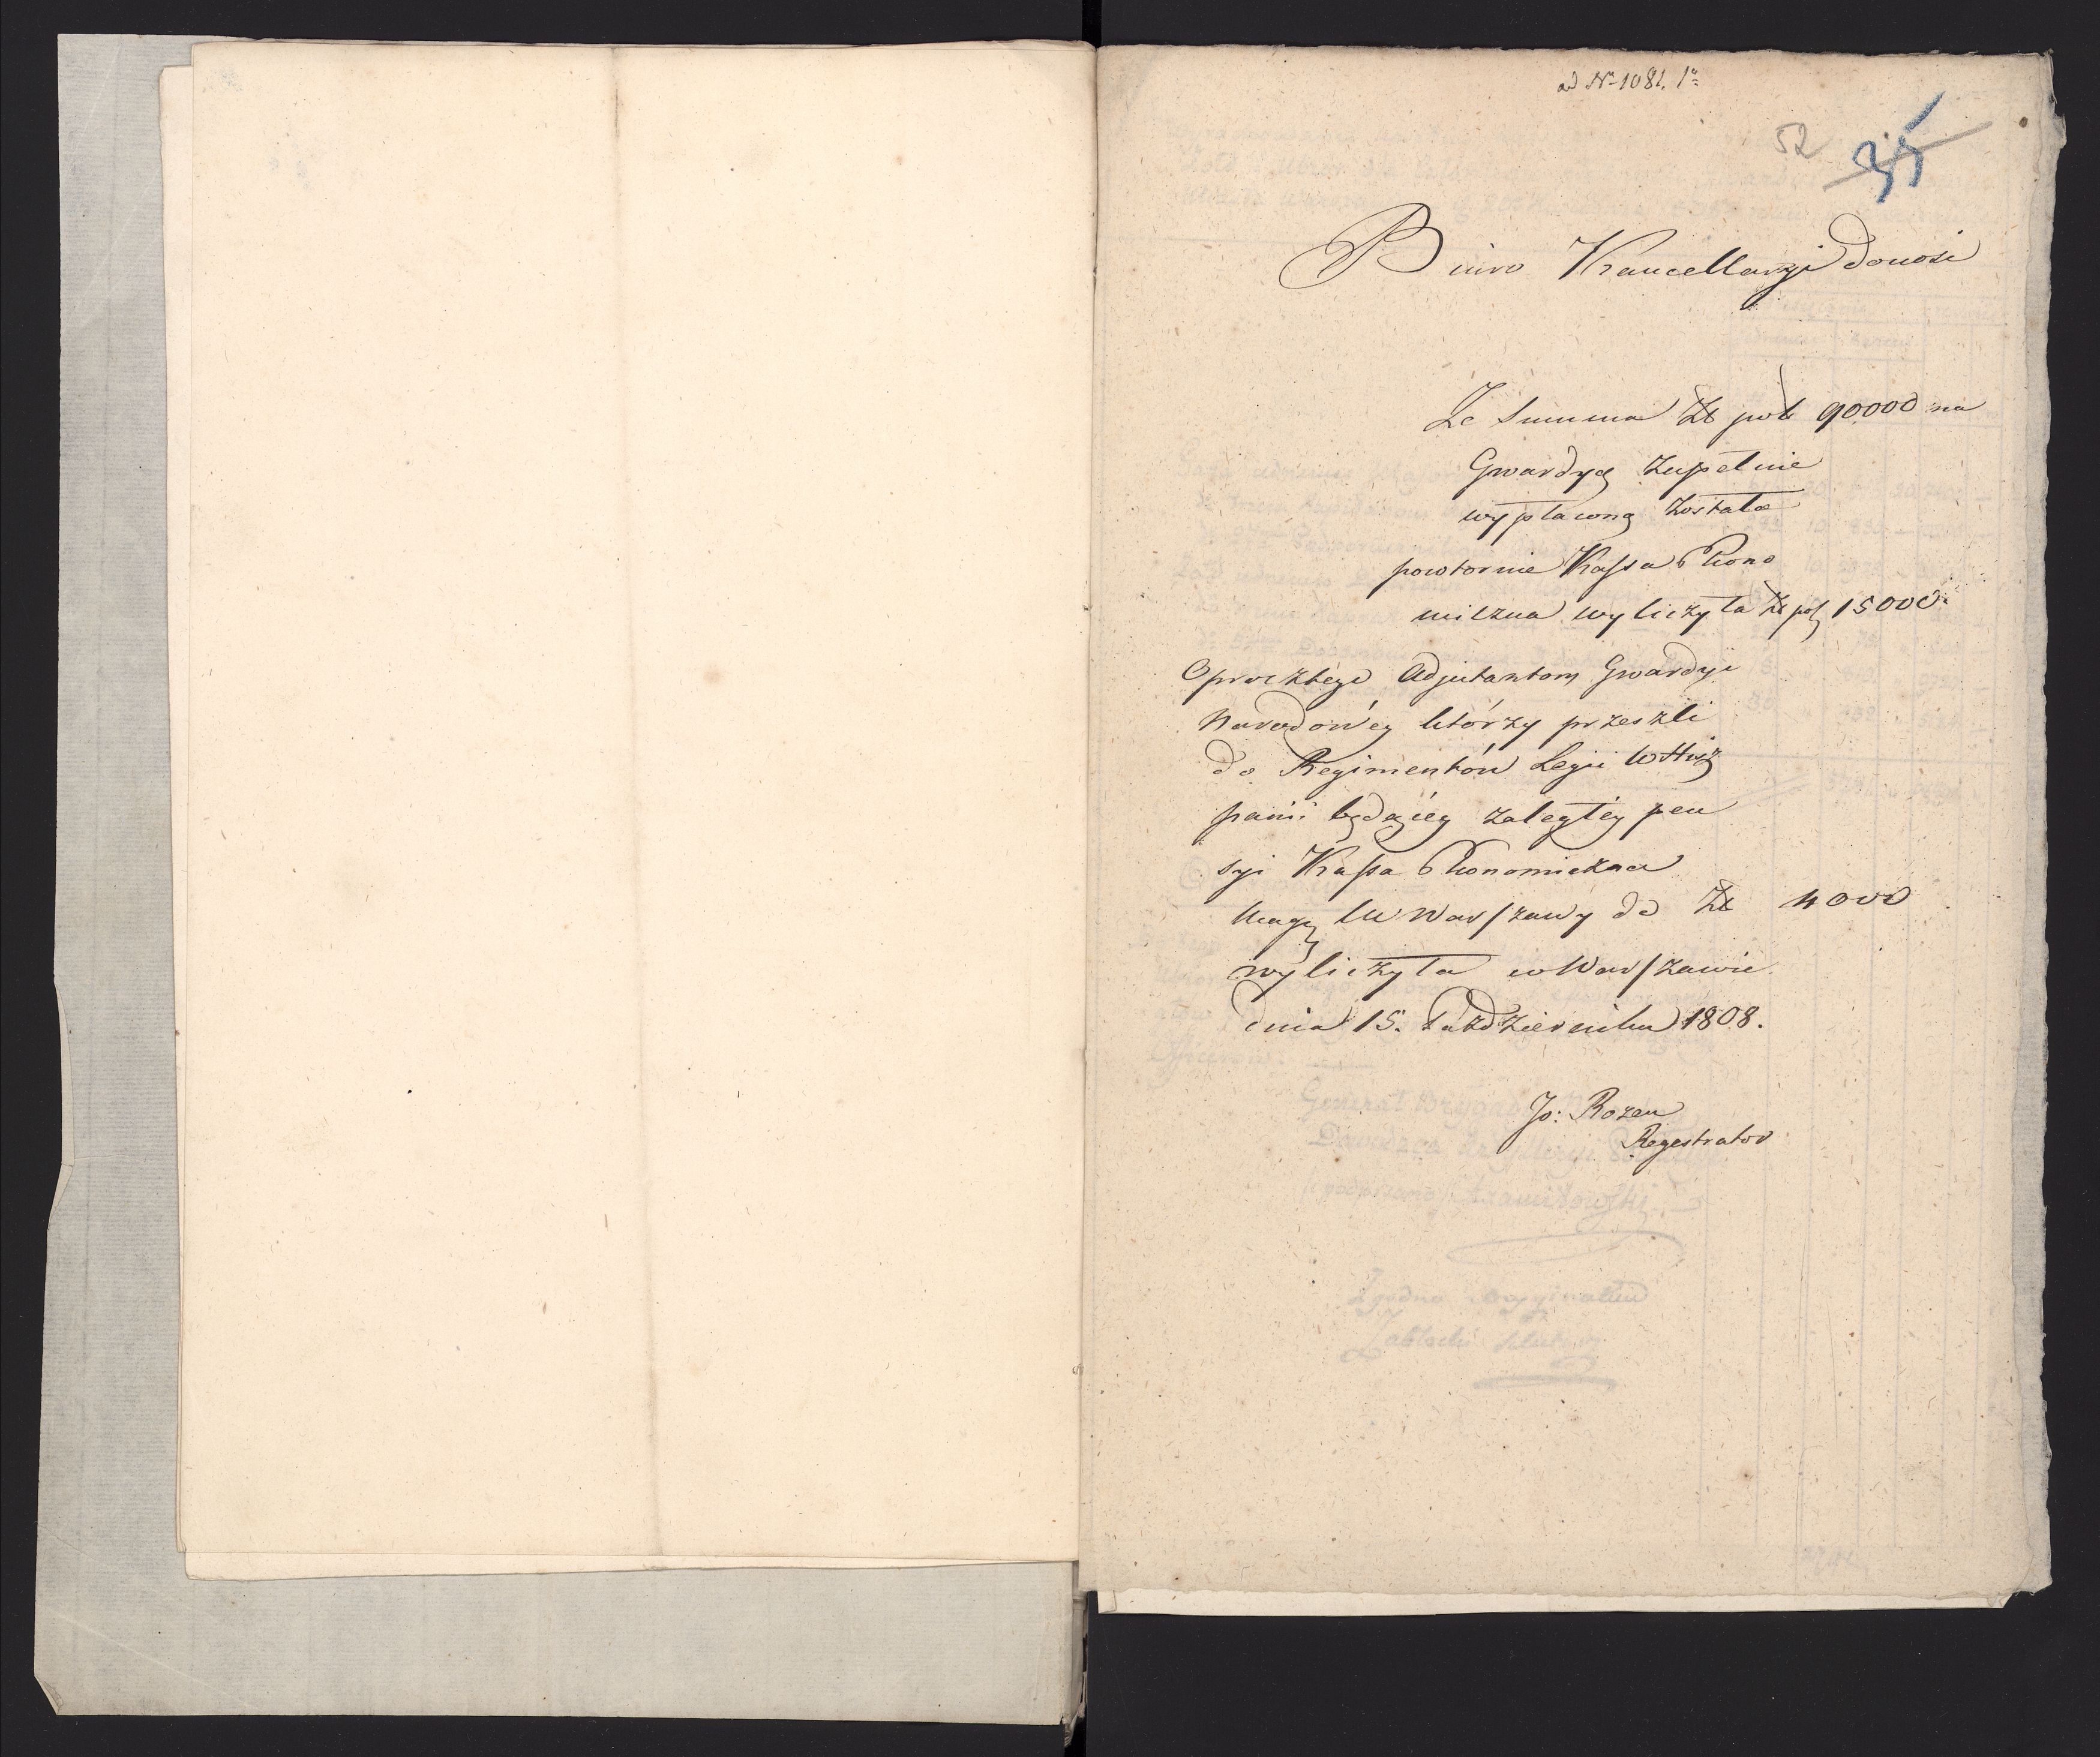 ad Nr 1081. 1o
52 35
Biuro Kancellaryi donosi
Ze Summa Zł pol 90000 na
Gwardyą Zupełnie
wypłaconą Została
powtornie Kassa Ekono
miczna wyliczyła Zł pol 15000.
Oprocz tego Adjutantom Gwardyi
Narodowey którzy przeszli
do Regimentów Legii w Hisz
panii będącey zaległey pen
syi Kassa Ekonomiczna
Mag M Warszawy do Zł 4000
wyliczyła w Warszawie
dnia 15. Października 1808.
Jo: Rozen
Regestrator